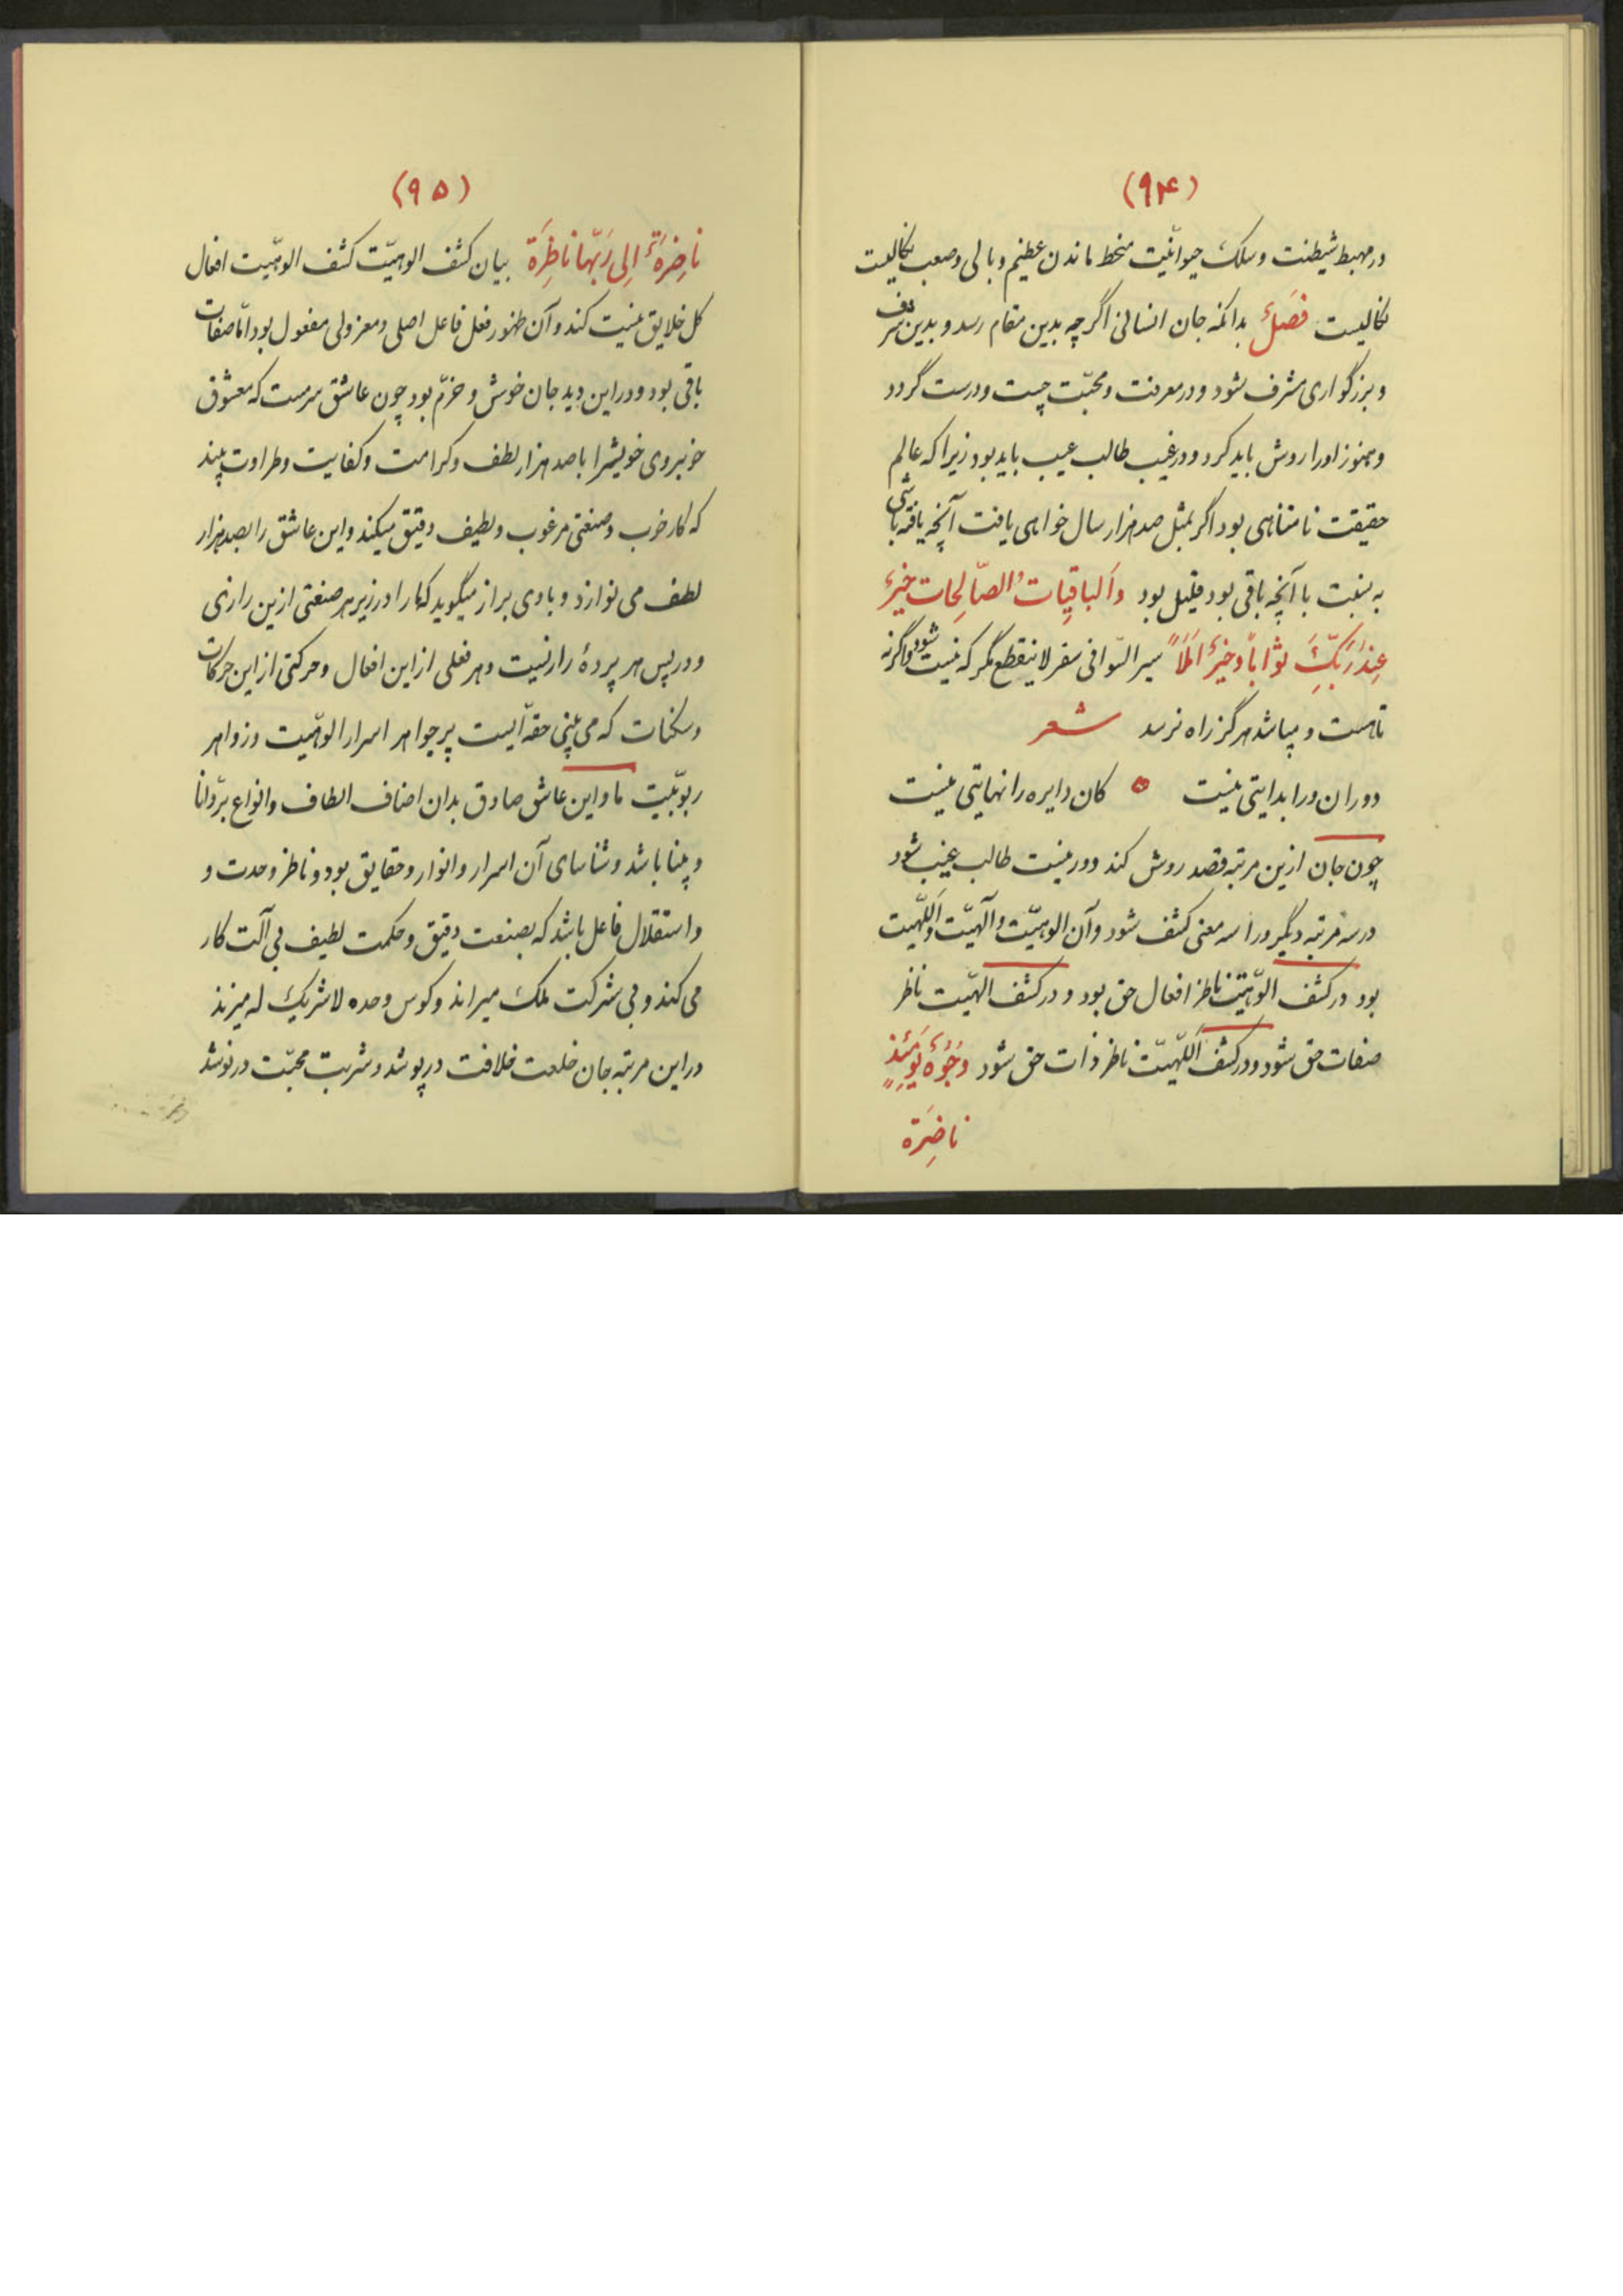 (۹۴)
در مهبط شیطنت و سلک حیوانیّت منحط ماندن عظیم وبالی و صعب نکالیست
نکالیست فصلٌ بدانکه جان انسانی اگر چه بدین مقام رسد و بدین شرف
و بزرگواری مشرف شود و در معرفت و محبّت چست و درست گردد
و هنوز اورا روش باید کرد و در غیب طالب عیب باید بود زیرا که عالم
حقیقت نامتناهی بود اگر بمثل صد هزار سال خواهی یافت آنچه یافته باشی
به نسبت با آنچه باقی بود قلیل بود وَالباقِیاتُ الصّالِحات خیرٌ
عِندَ رَبِّکَ ثَواباً وَخیرٌ اَمَلاً سیر السّوافی سفر لاینقطع مگر که نیست شود واگرنه
تا هست و میباشد هرگز راه نرسد شعر
دوران ورا بدایتی نیست ه کان دایره را نهایتی نیست
چون جان ازین مرتبه قصد روش کند و در نیست طالب غیب شود
در سه مرتبه دیگر ورا سه معنی کشف شود و آن الوهیّت و آلهیّت و اَللّهیت
بود در کشف الوّهیّت ناظر افعال حق بود و در کشف الهیّت ناظر
صفات حق شود و در کشف اَللّهیّت ناظر ذات حق شود وُجُوهٌ یَومَئِذٍ
ناضِرَة
(۹۵)
ناضِرَةٌ اِلی رَبّها ناظِرَة بیان کشف الوهیّت کشف الوهیّت افعال
کل خلایق نیست کند و آن ظهور فعل فاعل اصلی و معزولی مفعول بود امّا صفات
باقی بود و در این دید جان خوش و خرّم بود چون عاشق سرمست که معشوق
خوبروی خویشرا با صد هزار لطف و کرامت و کفایت و طراوت بیند
که کار خوب و صنعتی مرغوب و لطیف دقیق میکند و این عاشق را بصد هزار
لطف می نوازد و با وی براز میگوید که ما را در زیر هر صنعتی ازین رازی
و در پس هر پردهٔ رازیست و هر فعلی از این افعال و حرکتی از این حرکات
و سکنات که می بینی حقّه‌ایست پر جواهر اسرار الوهّیت و زواهر
ربوبّیت ما و این عاشق صادق بدان اصناف الطاف و انواع برّ دانا
و بینا باشد و شناسای آن اسرار و انوار و حقایق بود و ناظر وحدت و
و استقلال فاعل باشد که بصنعت دقیق و حکمت لطیف بی آلت کار
می کند و بی شرکت ملک میراند و کوس وحده لاشریک له میزند
در این مرتبه جان خلعت خلافت در پوشد و شربت محبّت در نوشد